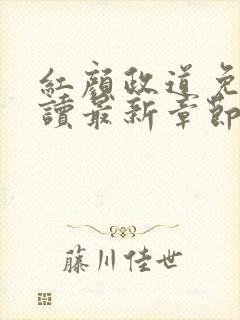 紅顏政道免
讀最新章節
藤川佳世